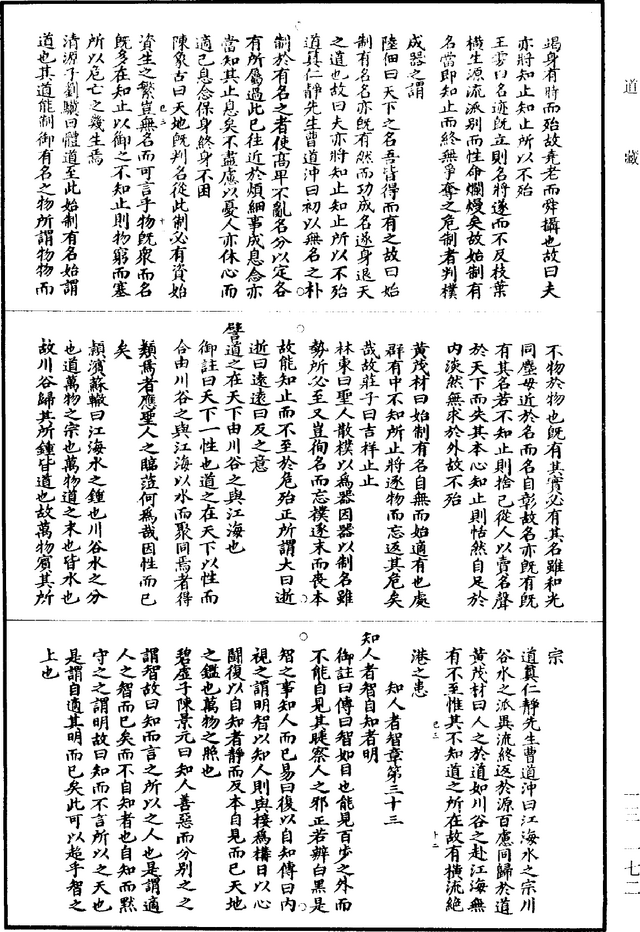 道藏
竭身有時而殆故堯老而舜攝也故曰夫
亦將知止知止所以不殆
王雱曰名迹既立則名將遂而不反枝葉
橫生源流派別而性命爛熳矣故始制有
名當即知止而終無爭奪之危制者判樸
成器之謂
陸佃曰天下之名吾皆得而有之故曰始
制有名名亦既有然而功成名遂身退天
之道也故曰夫亦將知止知止所以不殆
道真仁靜先生曹道沖曰初以無名之朴
制於有名之者使高卑不亂名分以定各
有所屬過此已往近於煩細事成息念亦
當知其止息矣不盡慮以憂人亦休心而
適己息念保身終身不困
陳象古曰天地既判名從此制必有資始
資生之繁豈無名而可言乎物既衆而名
既多在知止以御之不知止則物窮而塞
所以危亡之幾生焉
清源子劉驥曰體道至此始制有名始謂
道也其道能制御有名之物所謂物物而
不物於物也既有其實必有其名雖和光
同塵毋近於名而名自彰故名亦既有既
有其名若不知止則捨己從人以賣名聲
於天下而失其本心知止則怙然自足於
內淡然無求於外故不殆
黃茂材曰始制有名自無而始適有也處
群有中不知所止將逐物而忘返其危矣
哉故莊子曰吉祥止止
林東曰聖人散樸以為器因器以制名雖
勢所必至又豈徇名而忘樸遂末而喪本
故能知止而不至於危殆正所謂大曰逝
逝曰遠遠曰反之意
譬道之在天下由川谷之與江海也
御註曰天下一性也道之在天下以性而
合由川谷之與江海以水而聚同焉者得
類焉者應聖人之臨莅何為哉因性而已
矣
潁濱蘇轍曰江海水之鍾也川谷水之分
也道萬物之宗也萬物道之末也皆水也
故川谷歸其所鍾皆道也故萬物賓其所
宗
道真仁靜先生曹道沖曰江海水之宗川
谷水之派異流終返於源百慮同歸於道
黃茂材曰人之於道如川谷之赴江海無
有不至惟其不知道之所在故有橫流絕
港之患
知人者智章第三十三
知人者智自知者明
御註曰傳曰智如目也能見百步之外而
不能自見其睫察人之邪正若辨白黑是
智之事知人而已易曰復以自知傳曰內
視之謂明智以知人則與接為構日以心
鬪復以自知者靜而反本自見而已天地
之鑑也萬物之照也
碧虛子陳景元曰知人善惡而分別之之
謂智故曰知而言之所以之人也是謂適
人之智而已矣而不自知者也自知而黙
守之之謂明故曰知而不言所以之天也
是謂自適其明而已矣此可以超乎智之
上也
一三 一七二